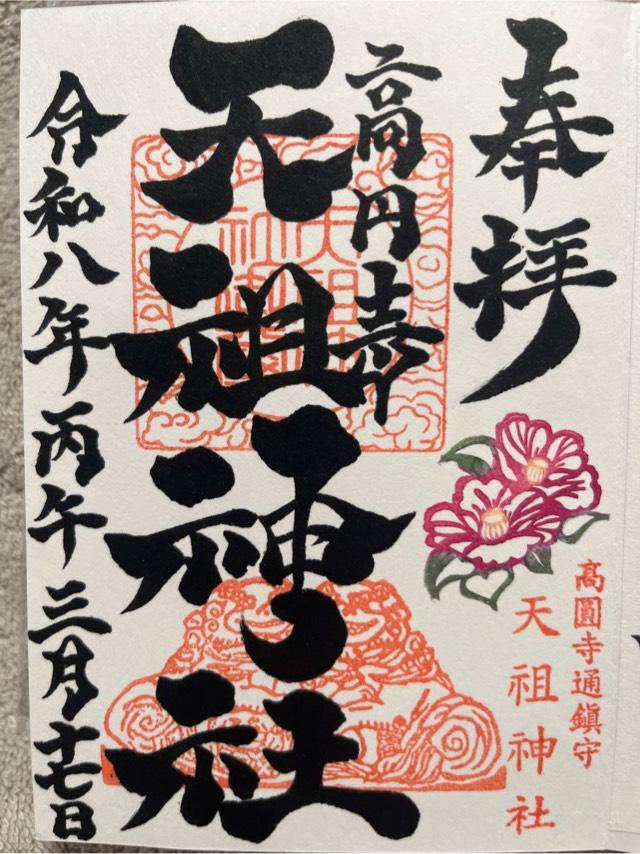 奉拝
高円寺
天祖神社
令和八年丙午三月十七日
高圓寺通鎮守
天祖神社